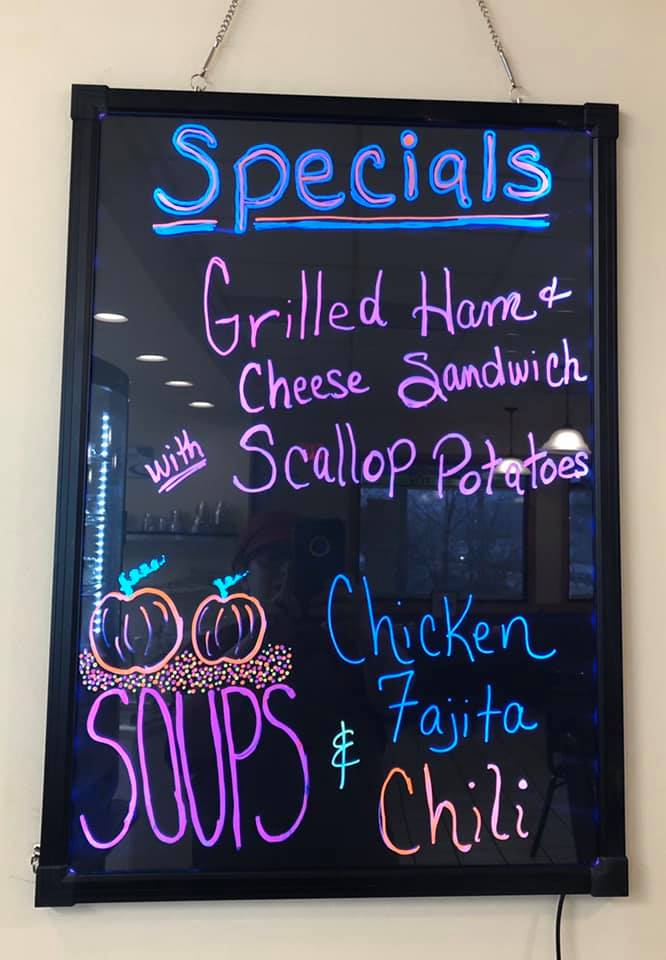 Specials
Grilled Ham &
Cheese Sandwich
with Scallop Potatoes
SOUPS
Chicken
Fajita
& Chili